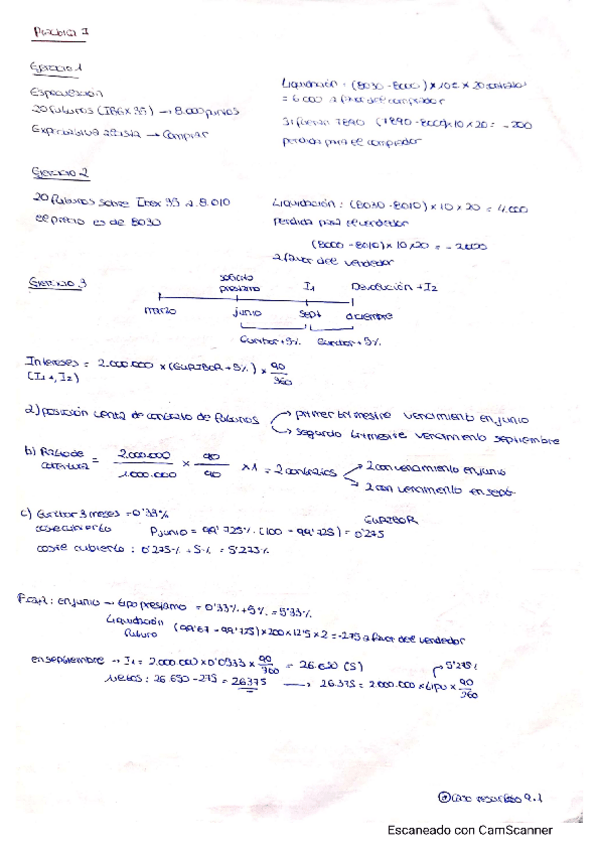 Práctica I
Ejercicio 1
Especulación
20 futuros (IBEX 35) → 8.000 puntos
Expectativa alcista → Comprar
Liquidación: (8030 - 8000) x 10€ x 20 contratos
= 6.000 a favor del comprador
Si fueran 7890 (7890 - 8000)x10 x 20 = -200
perdida para el comprador
Ejercicio 2
20 futuros sobre Ibex 35 a 8.010
el precio es de 8030
Liquidación: (8030 - 8010) x 10 x 20 = 4.000
perdida para el vendedor
(8000 - 8010) x 10 x 20 = - 2.000
a favor del vendedor
Ejercicio 3
solicito
prestamo I1 Devolución + I2
marzo junio sept diciembre
Euribor + 5% Euribor + 5%
Intereses = 2.000.000 x (EURIBOR + 5%) x 90/360
(I1 + I2)
a) posición venta de contrato de futuros → primer trimestre vencimiento en junio
→ segundo trimestre vencimiento septiembre
b) Ratio de cobertura = 2.000.000/1.000.000 x 90/90 x 1 = 2 contratos → 2 con vencimiento en junio
→ 2 con vencimiento en sept
c) Euribor 3 meses = 0'33%
EURIBOR
Pjunio = 99'725%. (100 - 99'725) = 0'275
coste cubierto: 0'275% + 5% = 5'275%
en junio → tipo prestamo = 0'33% + 5% = 5'33%
Liquidación
futuro (99'67 - 99'725) x 200 x 12'5 x 2 = -275 a favor del vendedor
en septiembre → I1 = 2.000.000 x 0'0533 x 90/360 = 26.650 (S)
Netos: 26.650 - 275 = 26375 → 26.375 = 2.000.000 x tipo x 90/360
5'275%
caso resuelto 9.1
Escaneado con CamScanner